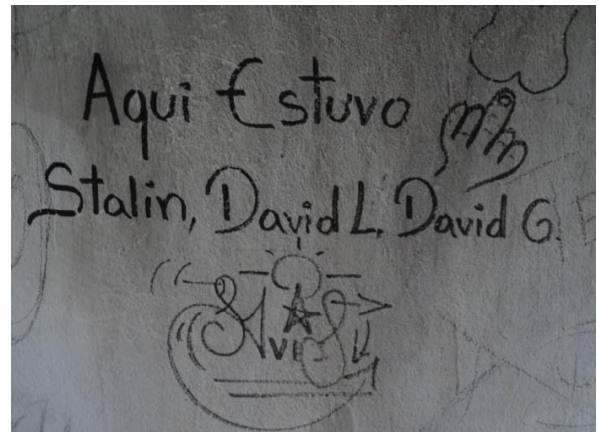 Aqui Estuvo
Stalin, David L, David G.